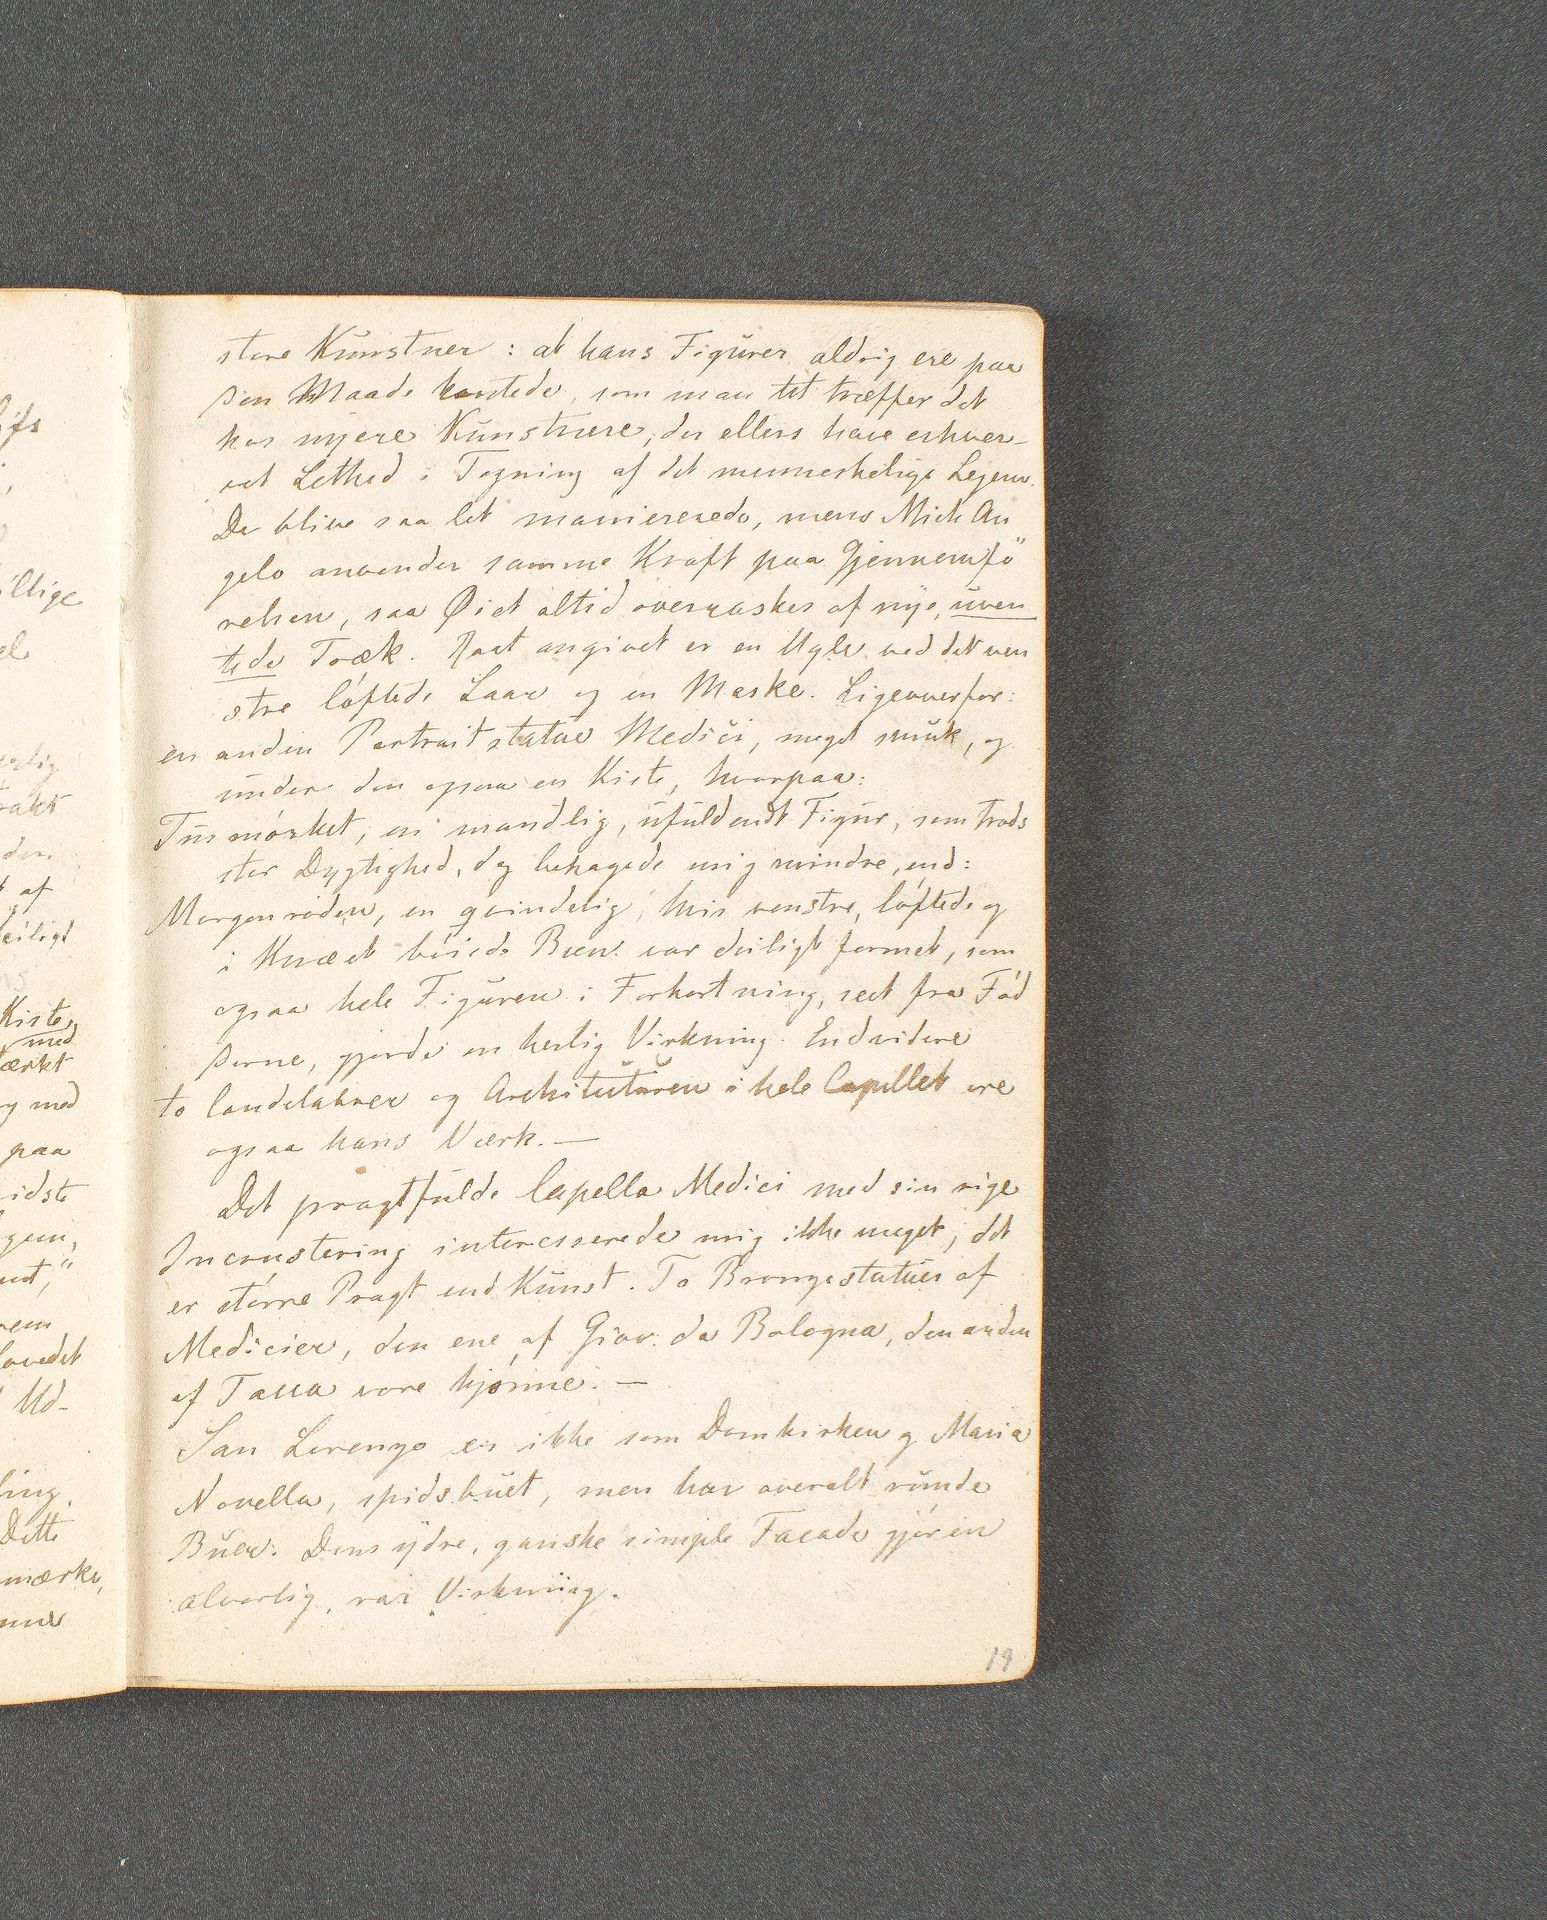 store Kunstner: at hans Figurer aldrig ere paa
den Maade kantede, som man tit træffer det
hos nyere Kunstnere, der ellers have erhver-
vet Lethed i Tegning af det menneskelige Legem.
De blive saa let maniererede, mens Mich An
gelo anvender samme Kraft paa Gjennemfö
relsen, saa Øiet altid overraskes af nye, uven
tede Træk. Raat angivet er en Ugle ved det ven
stre löftede Laar og en Maske. Ligeoverfor:
en anden Portraitstatue Medici, meget smuk, og
under den ogsaa en Kiste, hvorpaa:
Tusmörket, en mandlig, ufuldendt Figur, som trods
stor Dygtighed, dog behagede mig mindre, end:
Morgenröden, en qvindelig, hvis venstre, löftede og
i Knæet böiede Been var deiligt formet, som
ogsaa hele Figuren i Forkortning, seet fra Föd
derne, gjorde en herlig Virkning. Endvidere
to Candelabrer og Architeturen i hele Capellet ere
ogsaa hans Værk. —
Det pragtfulde Capella Medici med sin rige
Incrustering interesserede mig ikke meget, det
er större Pragt end Kunst. To Bronzestatuer af
Medicier, den ene af Giov. da Bologna, den anden
af Tacca vare kjönne. —
San Lorenzo er ikke som Domkirken og Maria
Novella, spidsbuet, men har overalt runde
Buer. Dens ydre, ganske simple Facade gjör en
alvorlig, rar Virkning.
19
ifs
illige
el
rakt
den
af
eiligt
Kiste,
med
ærkt
og med
paa
idste
gem,
ud,"
ovedet
Ud-
ling.
Dette
mærke,